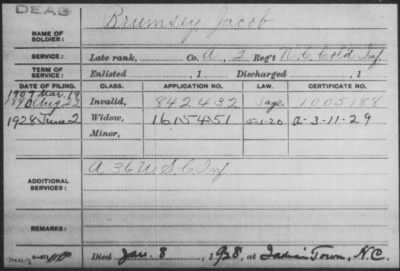 DEAD
Brumsey Jacob
NAME OF SOLDIER:
SERVICE: Late rank, Co. A, 2 Reg't N.C. Cold. Inf
TERM OF SERVICE: Enlisted , 1 Discharged , 1
DATE OF FILING. CLASS. APPLICATION NO. LAW. CERTIFICATE NO.
1907 Mar. 19
1890 Aug 22 Invalid, 842432 1005188
1928 June 2 Widow, 1615451 5-1-20 A-3-11-29
Minor,
ADDITIONAL SERVICES: A 36 U.S.C Inf
REMARKS:
Died Jan. 8, 1928, at Indian Town, N.C.